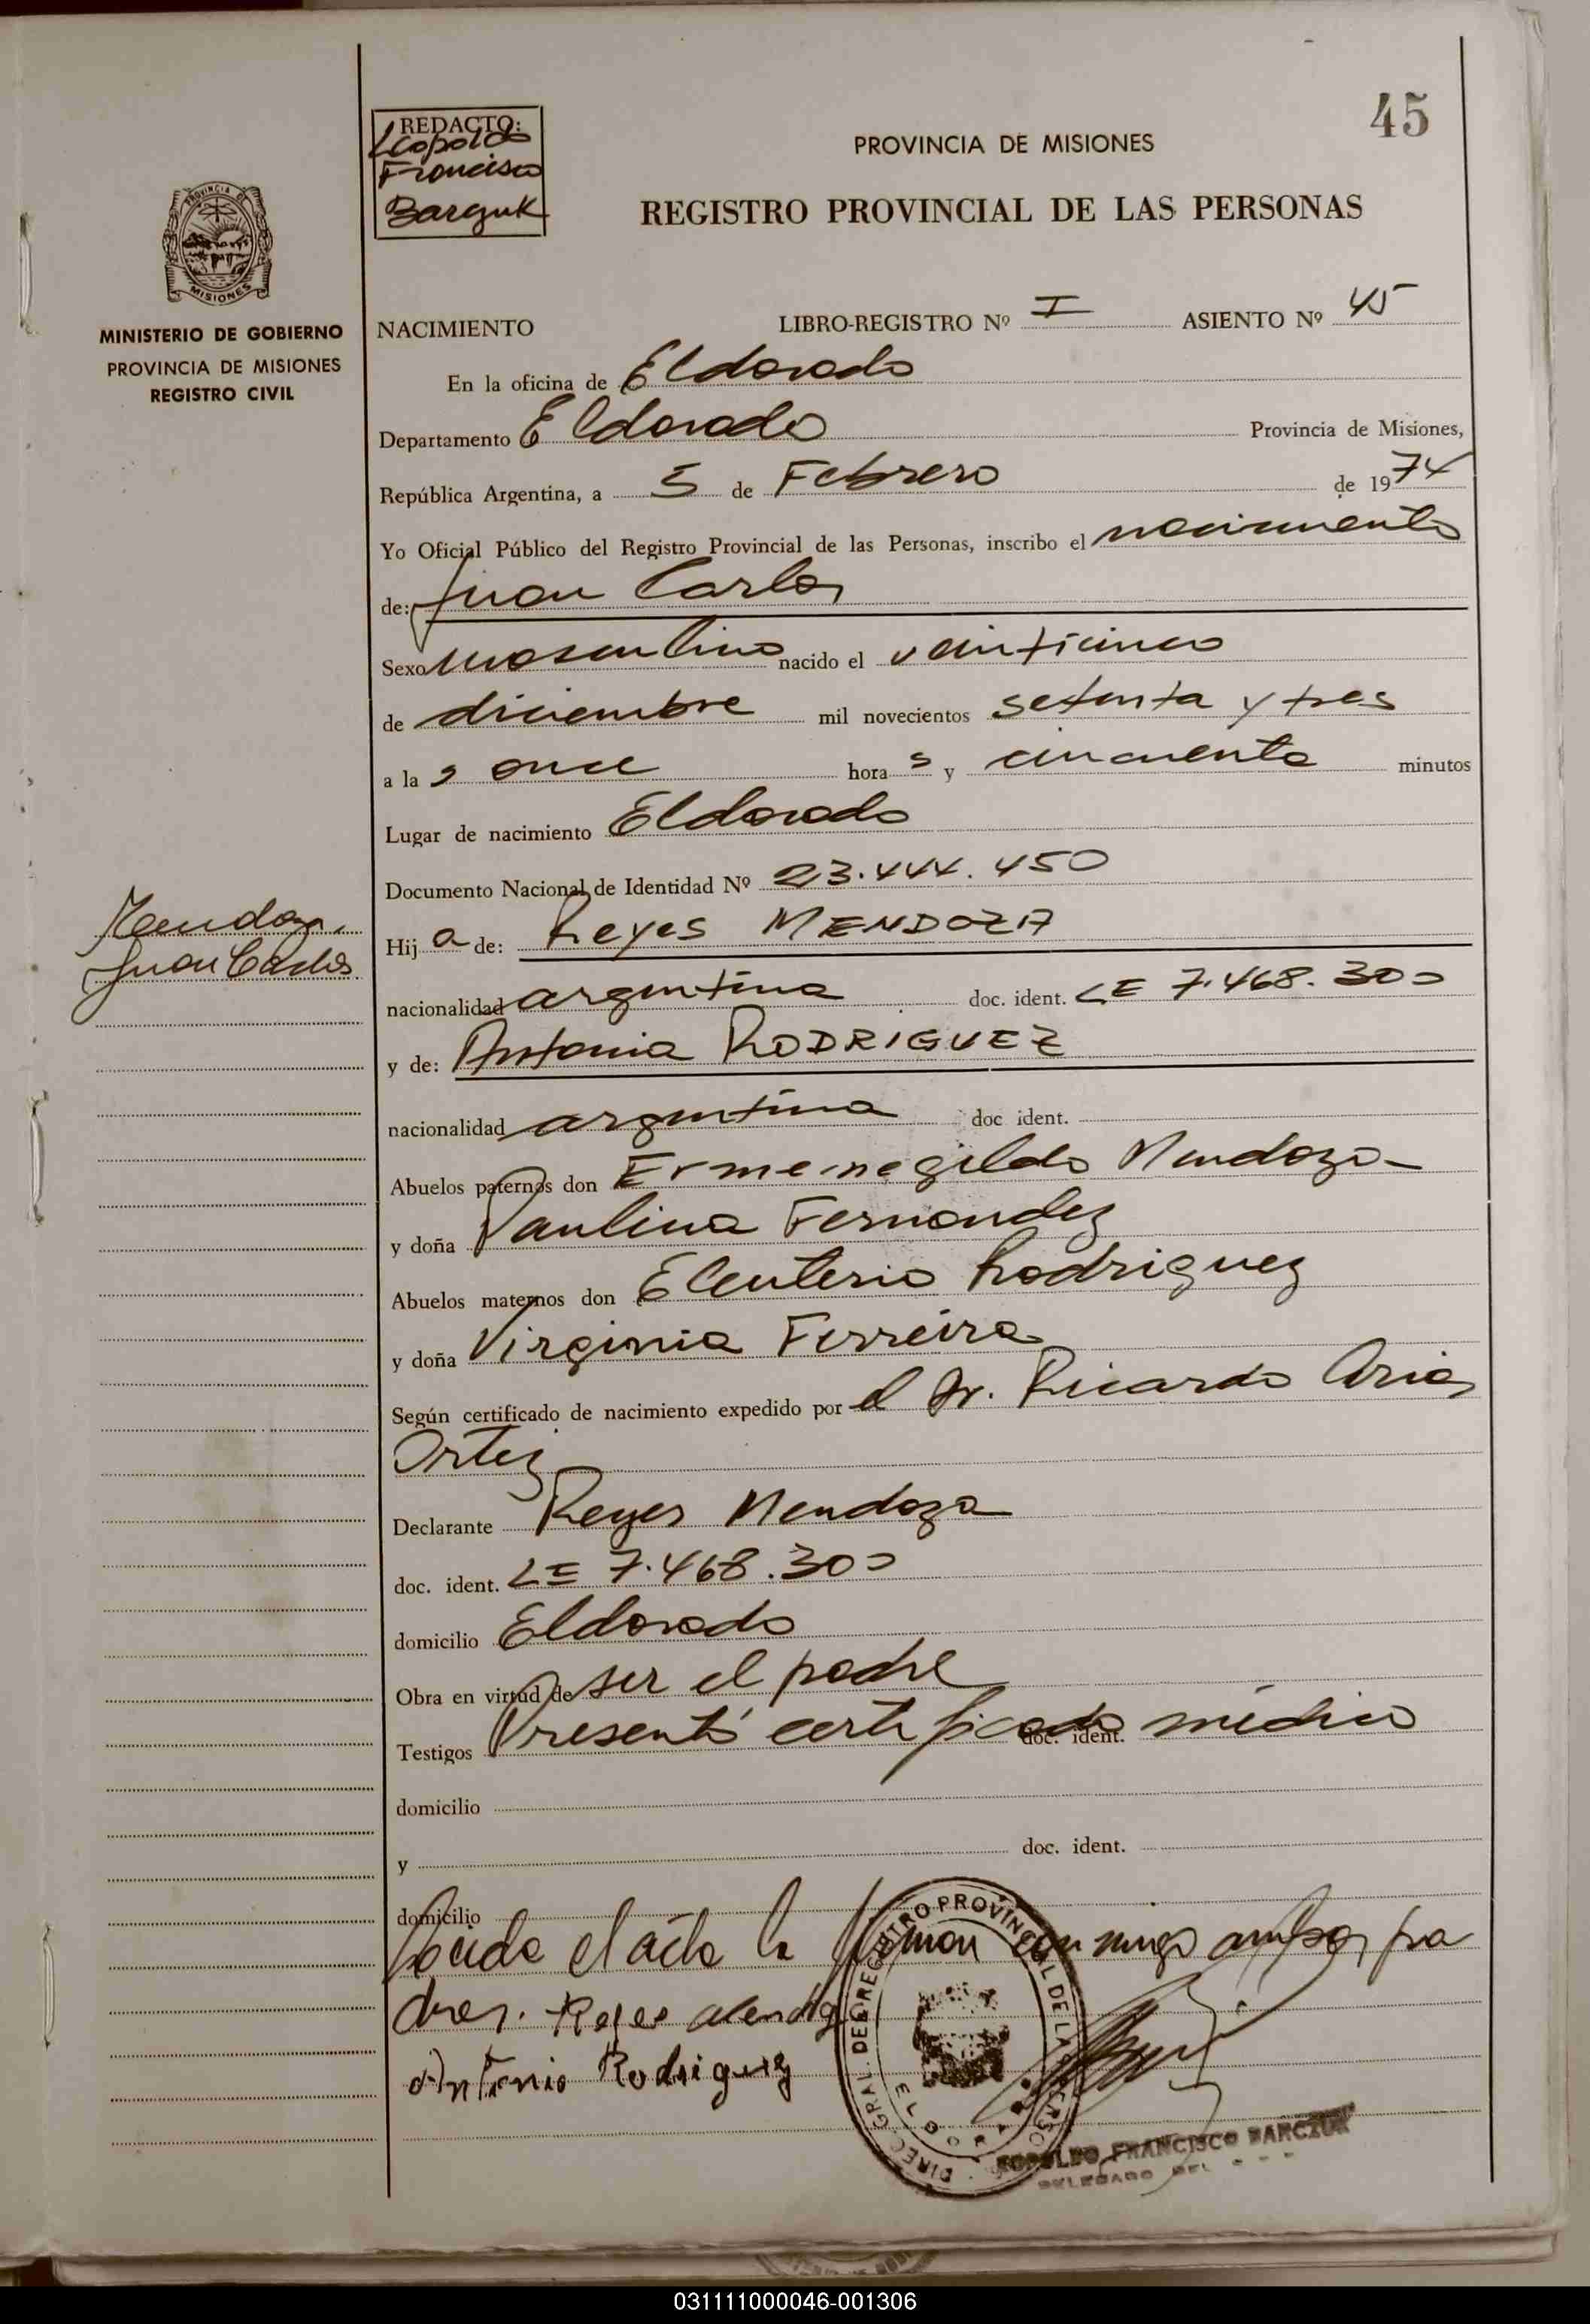 45
REDACTO:
Leopoldo
Francisco
Barczuk
PROVINCIA DE MISIONES
REGISTRO PROVINCIAL DE LAS PERSONAS
PROVINCIA DE
MISIONES
MINISTERIO DE GOBIERNO
PROVINCIA DE MISIONES
REGISTRO CIVIL
NACIMIENTO LIBRO-REGISTRO Nº I ASIENTO Nº 45
En la oficina de Eldorado
Departamento Eldorado Provincia de Misiones,
República Argentina, a 5 de Febrero de 1974
Yo Oficial Público del Registro Provincial de las Personas, inscribo el nacimiento
de: Juan Carlos
Sexo masculino nacido el veinticinco
de diciembre mil novecientos setenta y tres
a las once horas y cincuenta minutos
Lugar de nacimiento Eldorado
Documento Nacional de Identidad Nº 23.444.450
Mendoza,
Juan Carlos
Hijo de: Reyes MENDOZA
nacionalidad argentina doc. ident. LE 7.468.300
y de: Antonia RODRIGUEZ
nacionalidad argentina doc ident.
Abuelos paternos don Ermenegildo Mendoza
y doña Paulina Fernandez
Abuelos maternos don Eleuterio Rodriguez
y doña Virginia Ferreira
Según certificado de nacimiento expedido por el Dr. Ricardo Arias
Ortiz
Declarante Reyes Mendoza
doc. ident. LE 7.468.300
domicilio Eldorado
Obra en virtud de ser el padre
Testigos Presentó certificado doc. ident. médico
domicilio
y doc. ident.
domicilio
el acta la firman conmigo ambos pa
dres. Reyes Mendoza
Antonia Rodriguez
DIREC. GRAL. DEL REGISTRO PROVINCIAL DE LAS PERSONAS
ELDORADO
LEOPOLDO FRANCISCO BARCZUK
DELEGADO DEL
031111000046-001306